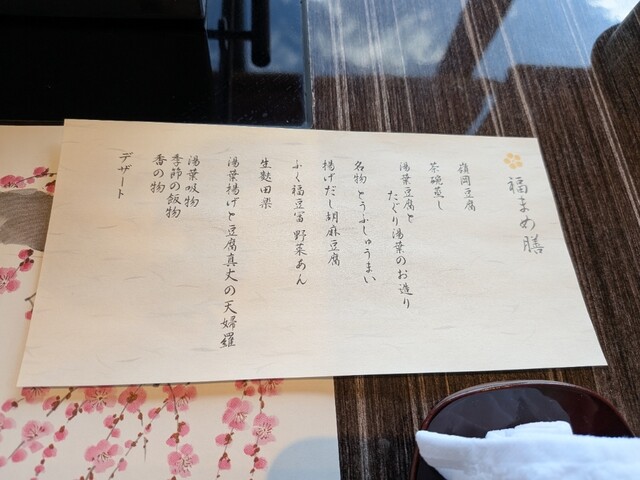 福まめ膳
嶺岡豆腐
茶碗蒸し
湯葉豆腐と
たぐり湯葉のお造り
名物 とうふしゅうまい
揚げだし胡麻豆腐
ふく福豆冨 野菜あん
生麩田楽
湯葉揚げと豆腐真丈の天婦羅
湯葉吸物
季節の飯物
香の物
デザート